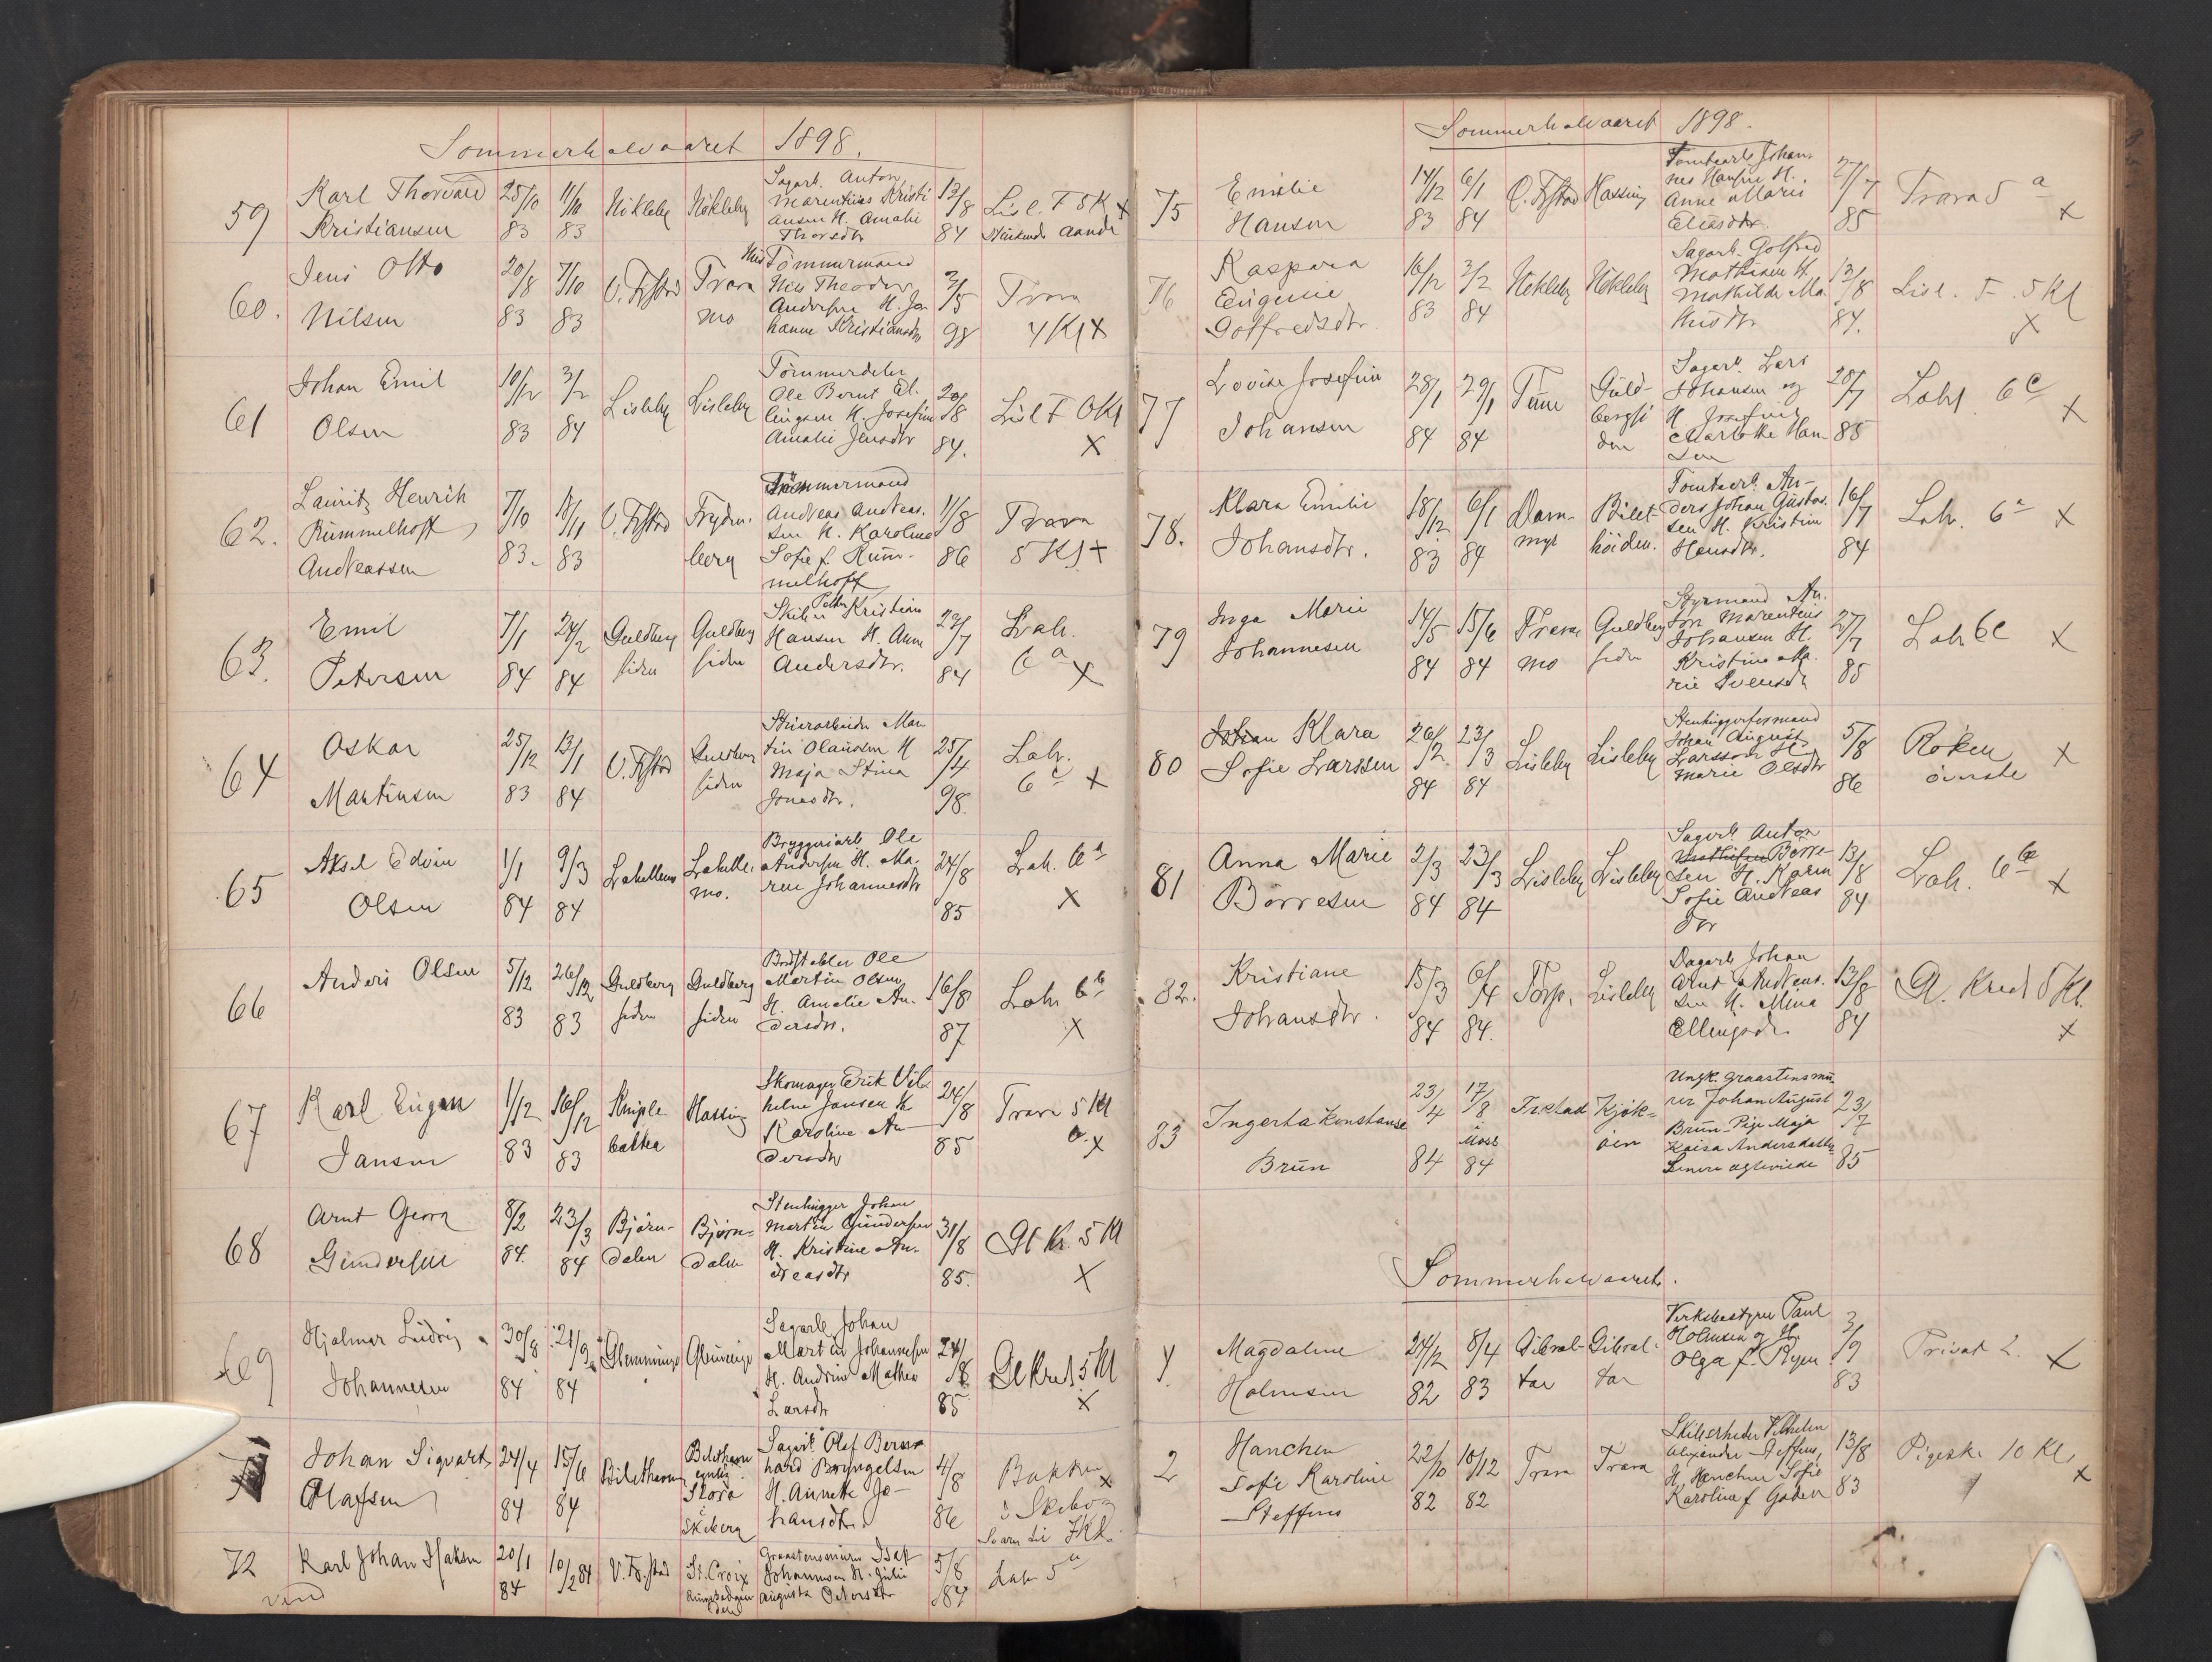 Sommerhalvaaret 1898.
59
Karl Thorvald
Kristiansen
25/10 83
11/10 83
Nökleby
Nökleby
Sagarb. Anton
Marentius Kristi
ansen H. Amalie
Thorsdtr
13/8 84
Lisl. F 5 K X
Stinkende Aande
60.
Jens Otto
Nilsen
20/8 83
7/10 83
V. Frstad
Trara
mo
Tömmermand
Nils Theodor
Andersen H. Jo
hanne Kristiansdtr
3/5 98
Trara
4 Kl X
61
Johan Emil
Olsen
10/12 83
3/2 84
Lisleby
Lisleby
Tömmerdeler
Ole Bernt El
lingsen H. Josefine
Amalie Jensdtr
20/8 84.
Lisl F 6Kl
X
62.
Lauritz Henrik
Rummelhoff
Andreassen
7/10 83.
18/11 83
V. Frstad
Fryden-
berg
Tömmermand
Andreas Andreas-
sen H. Karoline
Sofie f. Rum-
melhoff
11/8 86
Trara
5 Kl X
63.
Emil
Petersen
7/1 84
24/2 84
Guldberg
siden
Guldberg
siden
Petter Kristian
Hansen H. Anne
Andersdtr.
23/7 84
Lah.
6 a X
64
Oskar
Martinsen
25/12 83
13/1 84
V. Frstad
Guldberg
siden
Stuerarbeider Mar
tin Olaussen H
Maja Stina
Jonasdtr.
25/4 98.
Lah.
6 c X
65
Aksel Edvin
Olsen
1/1 84
9/3 84
Lahellemo
Lahelle-
mo.
Bryggeriarb Ole
Andersen H. Ma-
ren Johannesdtr
24/8 85
Lah. 6 a
X
66
Anders Olsen
5/12 83
26/12 83
Guldberg
siden
Guldberg
siden
Bordstabler Ole
Martin Olsen
H. Amalie An-
dersdtr.
16/8 87
Lah 6 b
X
67
Karl Eugen
Jansen
1/12 83
16/12 83
Kniple
bakke
Hassing
Skomager Erik Vil
helm Jansen H
Karoline An-
dersdtr
24/8 85
Trara 5 Kl
a. X
68
Arnt Georg
Gundersen
8/2 84.
23/3 84
Björn-
dalen
Björn-
dalen
Stenhugger Johan
Martin Gundersen
H. Kristine An-
dreasdtr
31/8 85.
Gl Kr. 5 Kl
X
69
Hjalmar Ludvig
Johannesen
30/8 84
21/9 84
Glemminge
Glemminge
Sagarb Johan
Martin Johannesen
H. Andrine Mathea
Larsdtr
24/8 85
Gl Kreds 5 Kl
X
Johan Sigvart
Olafsen
24/4 84
15/6 84
Bilethaven
Bilethaven
Skare
Skeberg
Sagarb Olaf Bern
hard Bryngelsen
H. Annette Jo-
hansdtr.
4/8 86
Bakken X
i Skeberg
72
Karl Johan Isaksen
20/1 84
10/2 84
V. Fr.stad
St. Croix
Graastensmurer Isak
Johannesen H. Julie
Augusta Petersdtr
5/8 84
Lah 5 a
vend
Sommerhalvaaret 1898.
75
Emilie
Hansen
14/12 83
6/1 84
Ö. Frstad
Hassing
Tomtearb Johan-
nes Hansen H.
Anne Marie
Eliasdtr.
27/7 85
Trara 5 a
X
76
Kaspara
Eugenie
Golfredsdtr.
16/12 83
3/2 84
Nökleby
Nökleby
Sagarb. Golfred
Mathisen H.
Mathilde Ma
thisdtr
13/8 84.
Lisl. F. 5 Kl
X
77
Lovise Josefine
Johansen
28/1 84
29/1 84
Tune
Guld-
bergsi
den
Sagarb. Lars
Johansen og
H Josefine
Charlotte Han-
sen
28/7 85
Lahl 6 c
X
78.
Klara Emilie
Johansdtr.
18/12 83
6/1 84
Dam-
myr
Bilet-
höiden.
Tomtearb. An-
ders Johan Gustav-
sen H. Kristine
Hansdtr.
16/7 84
Lah. 6 a X
79
Inga Marie
Johannesen
14/5 84
15/6 84
Trara
mo
Guldberg
siden
Styrmand An-
ton Marentius
Johansen H.
Kristine Ma-
rie Svensdtr
27/7 85
Lah 6c X
80
Johan Klara
Sofie Larssen
26/2 84
23/3 84
Lisleby
Lisleby
Stenhuggerformand
Johan August
Larsson H
Marie Olsdtr
5/8 86
Röken X
överste
81
Anna Marie
Börresen
2/3 84
23/3 84
Lisleby
Lisleby
Sagarb Anton
Mathisen Börre-
sen H. Karen
Sofie Andreas
dtr
13/8 84
Lah. 6 X
82.
Kristiane
Johansdtr.
15/3 84
6/4 84.
Torp.
Lisleby
Dagarb Johan
Arnt Andreas-
sen H. Mina
Ellingsdtr.
13/8 84
Gl. Kreds 5 Kl.
X
83
Ingerta Konstanse
Brun
23/4 84
17/8 Moss 84
Kjök-
öen
Ungk. Graastensmu-
rer Johan August
Brun - Pige Maja
Kaisa Andersdatter
23/7 85
Sommerhalvaaret.
1
Magdalene
Holmsen
24/12 82
8/4 83
Gibral-
tar
Gibral-
tar
Verksbestyrer Paul
Holmsen og H.
Olga f. Ryen
3/9 83
Privat 2. X
2
Hanchen
Sofie Karoline
Steffens
22/10 82
10/12 82
Trara
Trara
Alexander Steffens,
H. Hanchen Sofie
Karoline f Goden
13/8 83
Pigesk. 10 Kl,
X